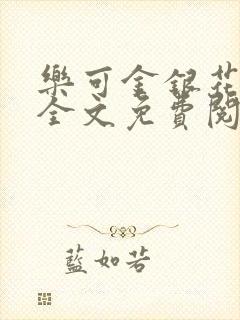 樂可金銀花
全文免費閱
藍如若